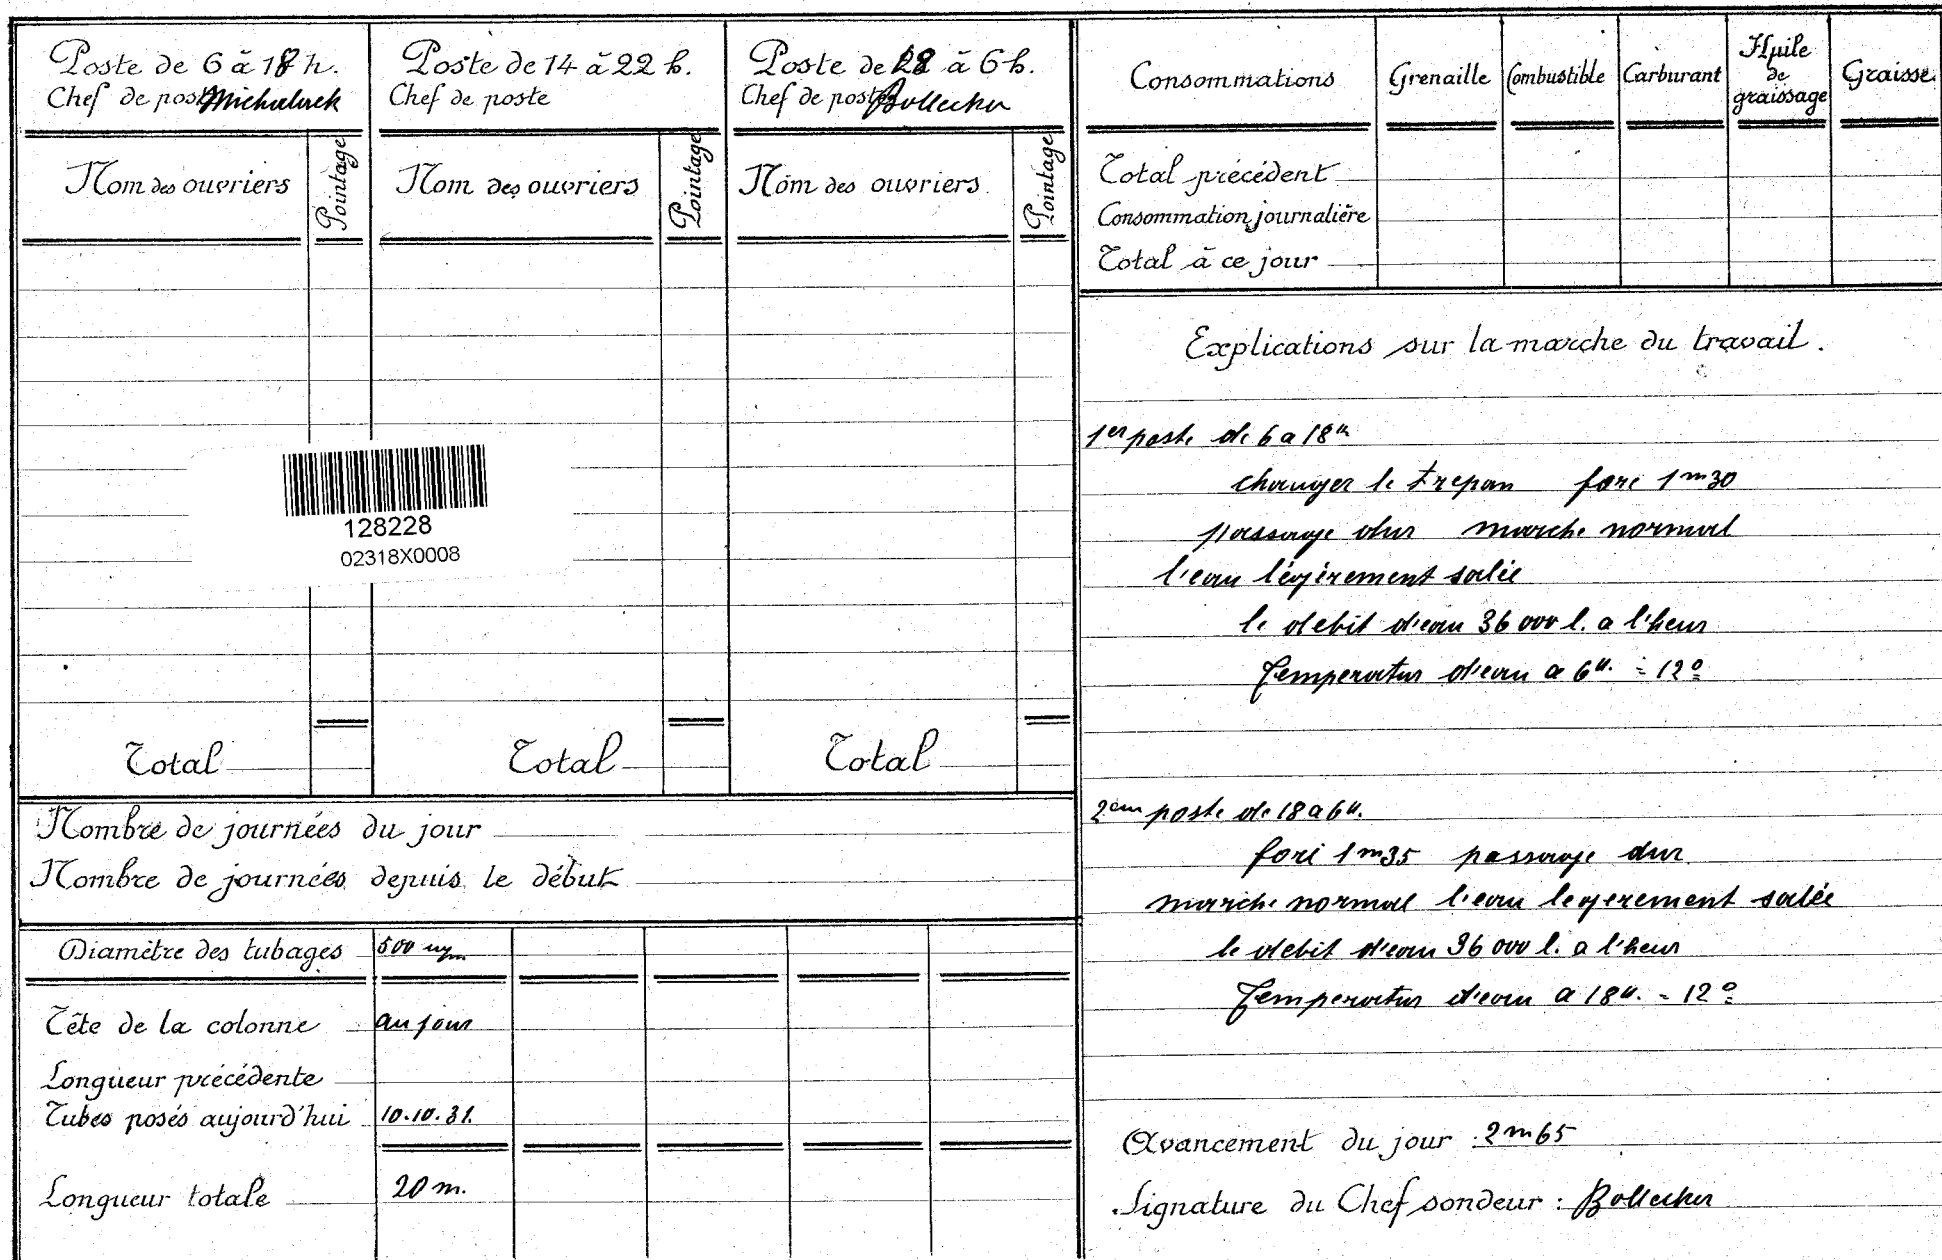 Poste de 6 à 18 h.
Chef de poste Michalack
Nom des ouvriers
Pointage
Total
Poste de 14 à 22 h.
Chef de poste
Nom des ouvriers
Pointage
Total
Poste de 18 à 6 h.
Chef de poste Bollecker
Nom des ouvriers
Pointage
Total
128228
02318X0008
Nombre de journées du jour
Nombre de journées depuis le début
Diamètre des tubages 500 m/m
Tête de la colonne au jour
Longueur précédente
Tubes posés aujourd'hui 10.10.31.
Longueur totale 20 m.
Consommations Grenaille Combustible Carburant Huile de graissage Graisse
Total précédent
Consommation journalière
Total à ce jour
Explications sur la marche du travail.
1er poste de 6 a 18h
changer le trepan foré 1m30
passage dur marche normal
l'eau légèrement salée
le debit d'eau 36 000 l. a l'heur
Temperatur d'eau a 6h. = 12°
2em poste de 18 a 6h.
foré 1m35 passage dur
marche normal l'eau legerement salée
le debit d'eau 36 000 l. a l'heur
Temperatur d'eau a 18h. = 12°
Avancement du jour : 2m65
Signature du Chef sondeur : Bollecker